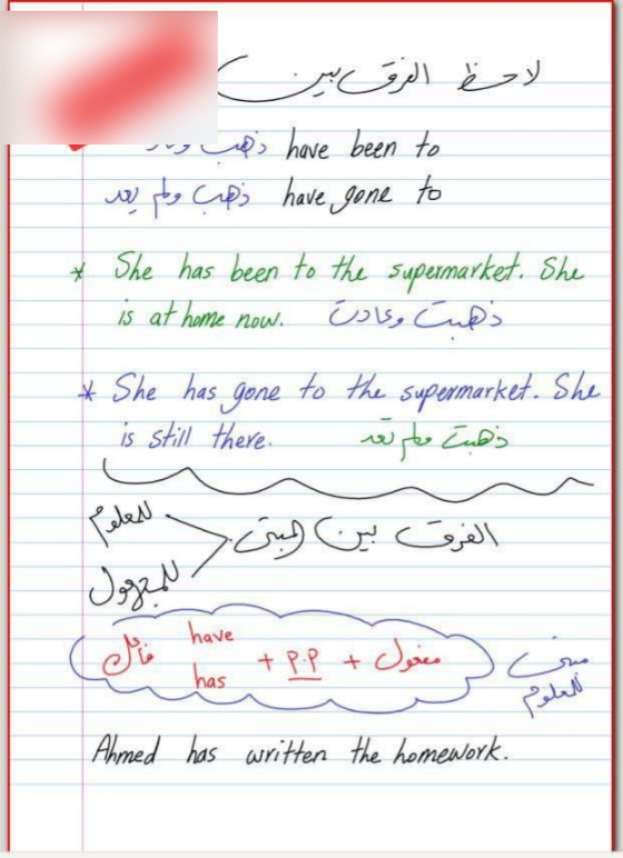 لاحظ الفرق بين
have been to ذهب وعاد
have gone to ذهب ولم يعد
* She has been to the supermarket. She
is at home now. ذهبت وعادت
* She has gone to the supermarket. She
is still there. ذهبت ولم تعد
الفرق بين المبنى
للمعلوم
للمجهول
فاعل have has + P.P + مفعول
مبنى للمعلوم
Ahmed has written the homework.